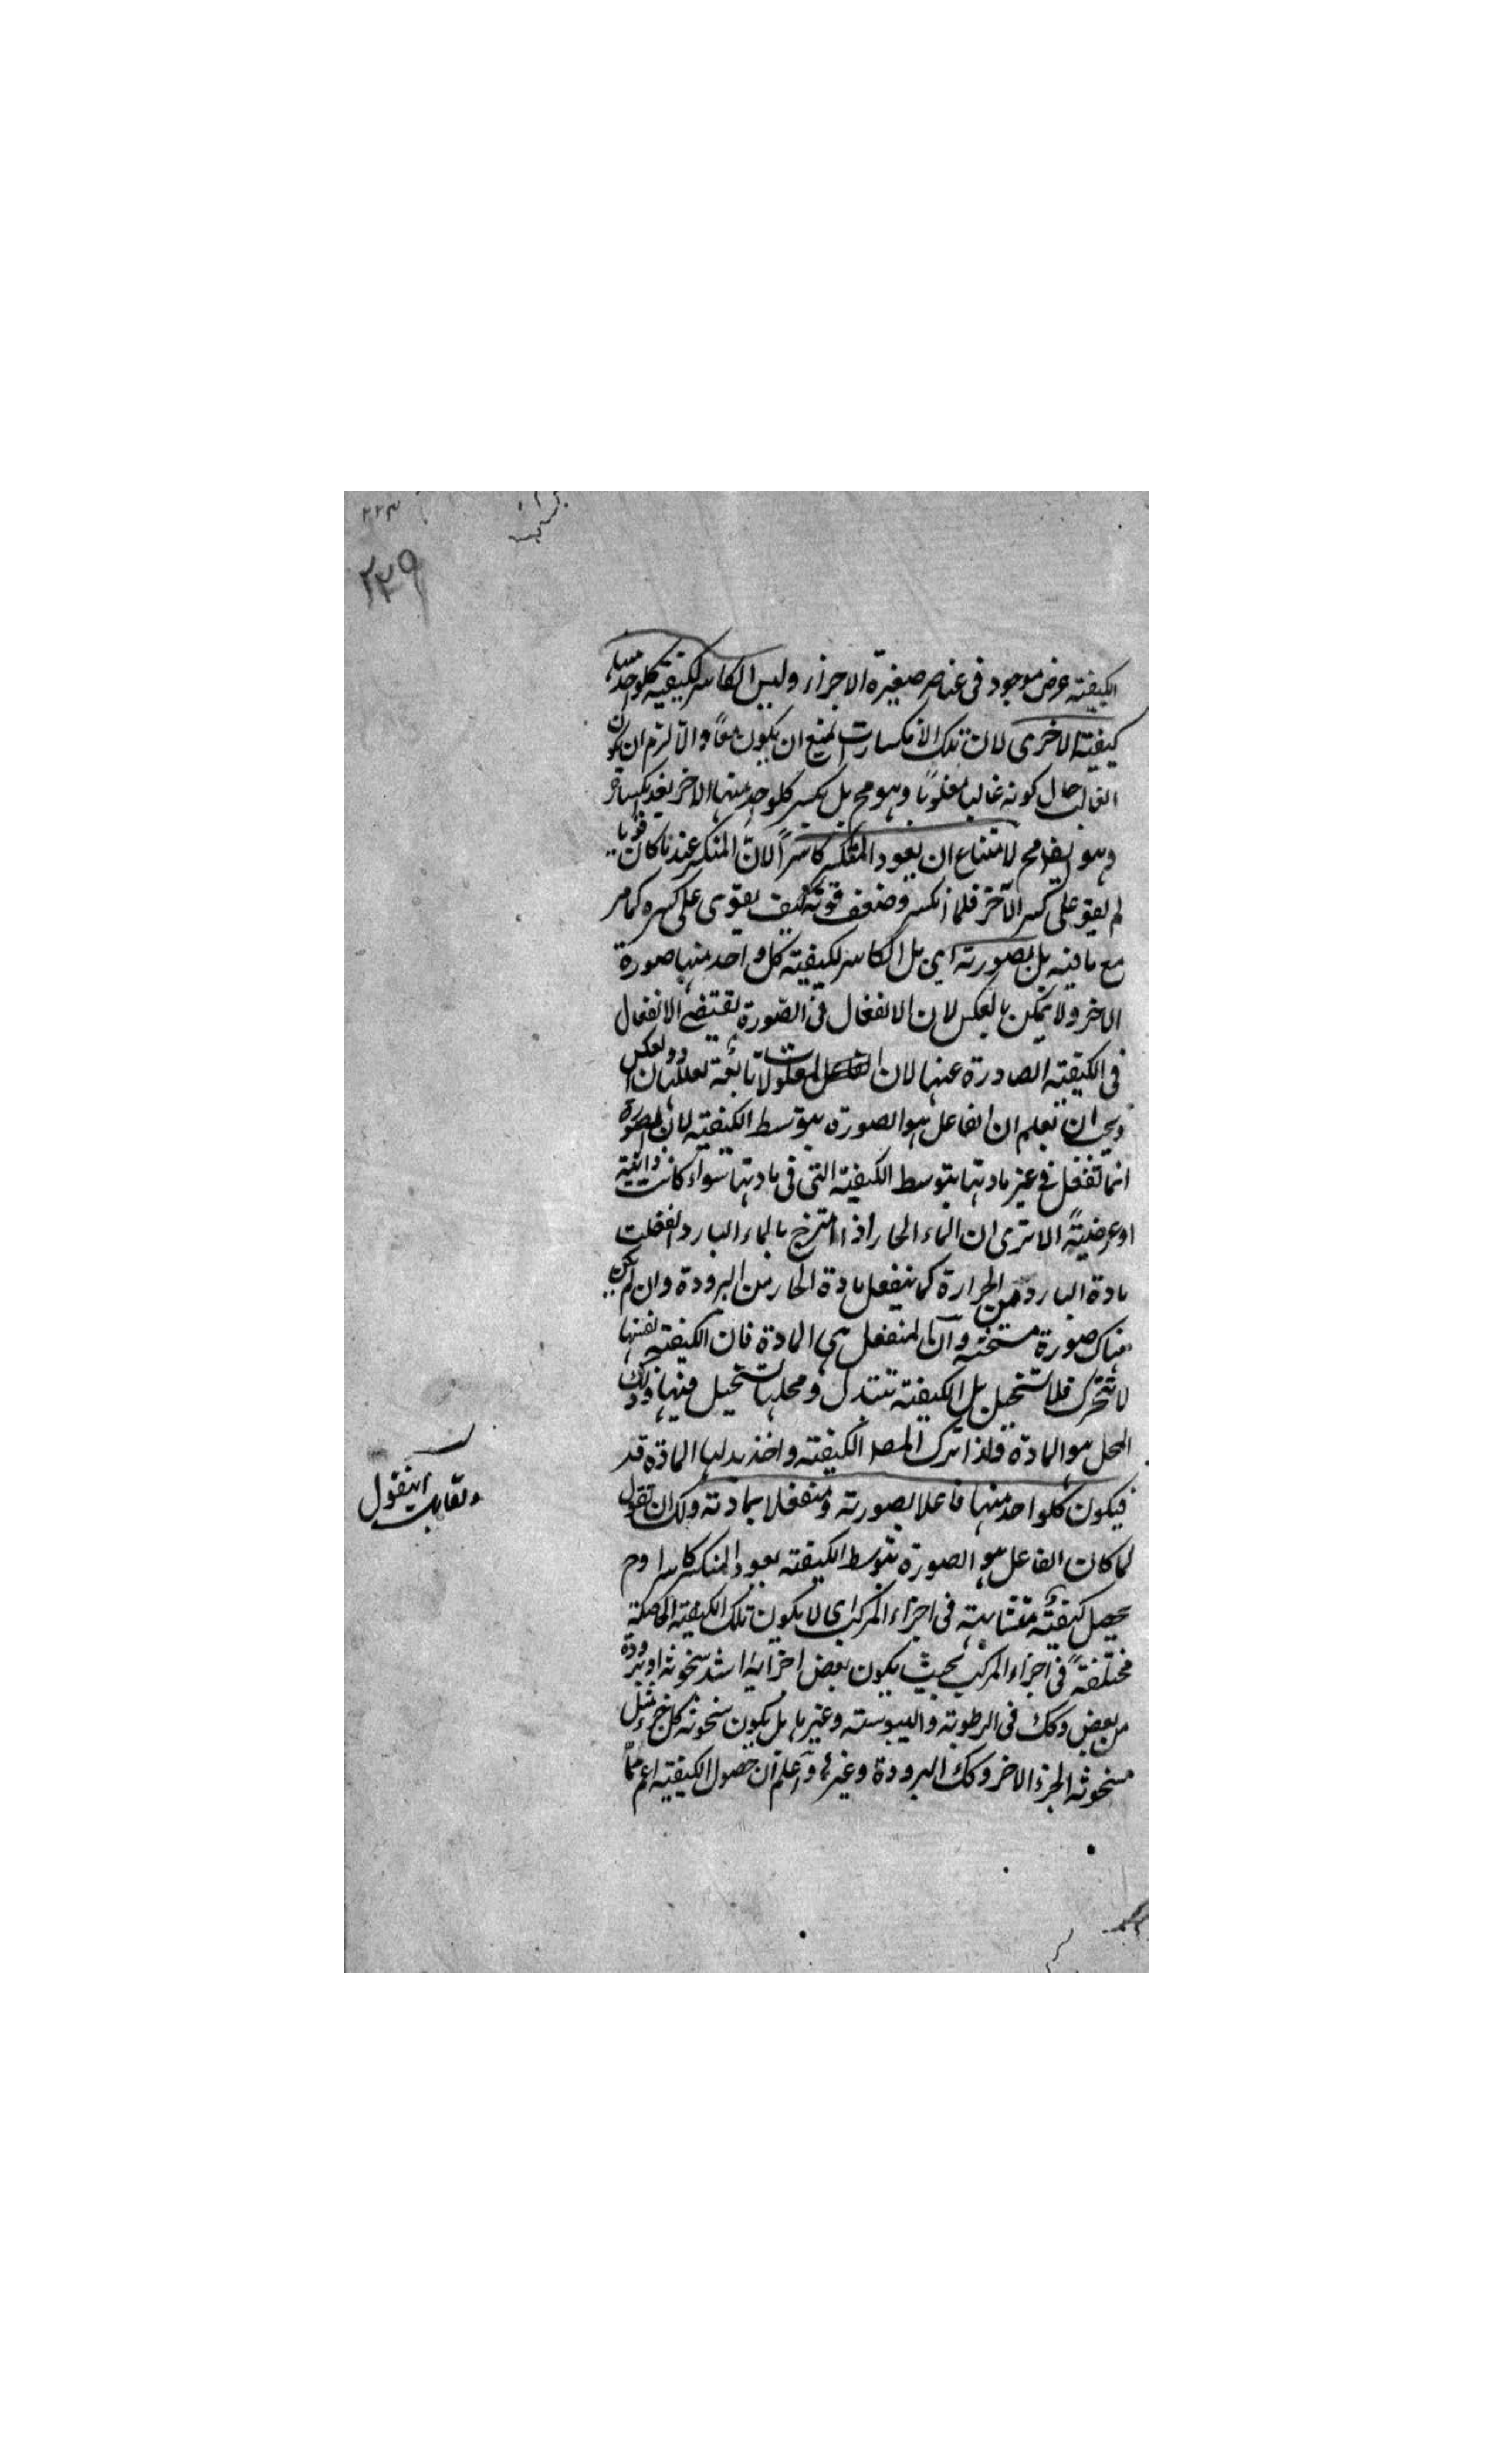 ٢٢٣
٢٣٩
الكيفية عرض موجود فى عناصر صغيرة الاجزاء وليس الكاسر لكيفية كلواحد منها
كيفية الاخرى لان تلك الانكسارات امتنع ان يكون معًا والا لزم ان يكون
الغالب حال كونه غالبا مغلوبًا وهو مح بل يكسر كلواحد منها الاخر بعد
وهو ايضا مح لامتناع ان يعود المنكسر كاسرًا لان المنكسر عندنا كان قويا
لم يقو على كسر الآخر فلما انكسر وضعف قوته كيف يقوى على كسره كما مر
مع ما فيه بل بصورته اى بل الكاسر لكيفية كل واحد منها صورة
الاخر ولا يمكن بالعكس لان الانفعال فى الصورة يقتضى الانفعال
فى الكيفية الصادرة عنها لان المعلولات تابعة لعللها دون العكس
ويجب ان تعلم ان الفاعل هو الصورة بتوسط الكيفية لان الصورة
انما تفعل فى غير مادتها بتوسط الكيفية التى فى مادتها سواء كانت ذاتية
او عرضيةً الا ترى ان الماء الحار اذا امتزج بالماء البارد انفعلت
مادة البارد من الحرارة كما ينفعل مادة الحار من البرودة وان لم يكن
هناك صورة مسخنة وان المنفعل هى المادة فان الكيفية نفسها
لا تتحرك فلا تستحيل بل الكيفية تتبدل ومحلها تستحيل فيها وذلك
المحل هو المادة ولذا ترك المصـ الكيفية واخذ بدلها المادة قد
فيكون كلواحد منها فاعلا بصورته ومنفعلا بمادته ولك ان تقول
لما كان الفاعل هو الصورة بتوسط الكيفية يعود المنكسر كاسرا وح
يحصل كيفية متشابهة فى اجزاء المركب اى لا يكون تلك الكيفية الحاصلة
مختلفةً فى اجزاء المركب بحيث يكون بعض اجزائه اشد سخونة او برودة
من بعض وكك فى الرطوبة واليبوسة وغيرها بل يكون سخونة كل جزء مثل
سخونة الجزء الاخر وكك البرودة وغيرها واعلم ان حصول الكيفية اعم مما
ولقايل ان يقول